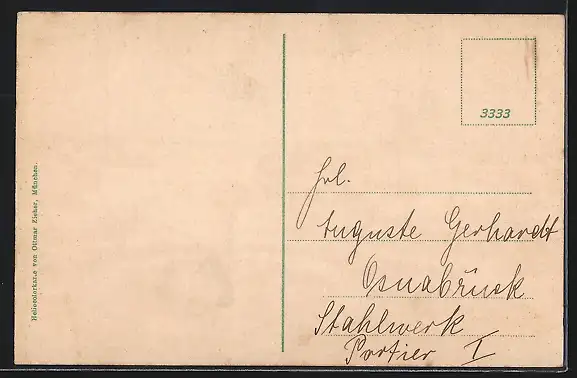 Heliocolorkarte von Ottmar Zieher, München.
3333
Frl.
Auguste Gerhardt
Osnabrück
Stahlwerk
Portier I